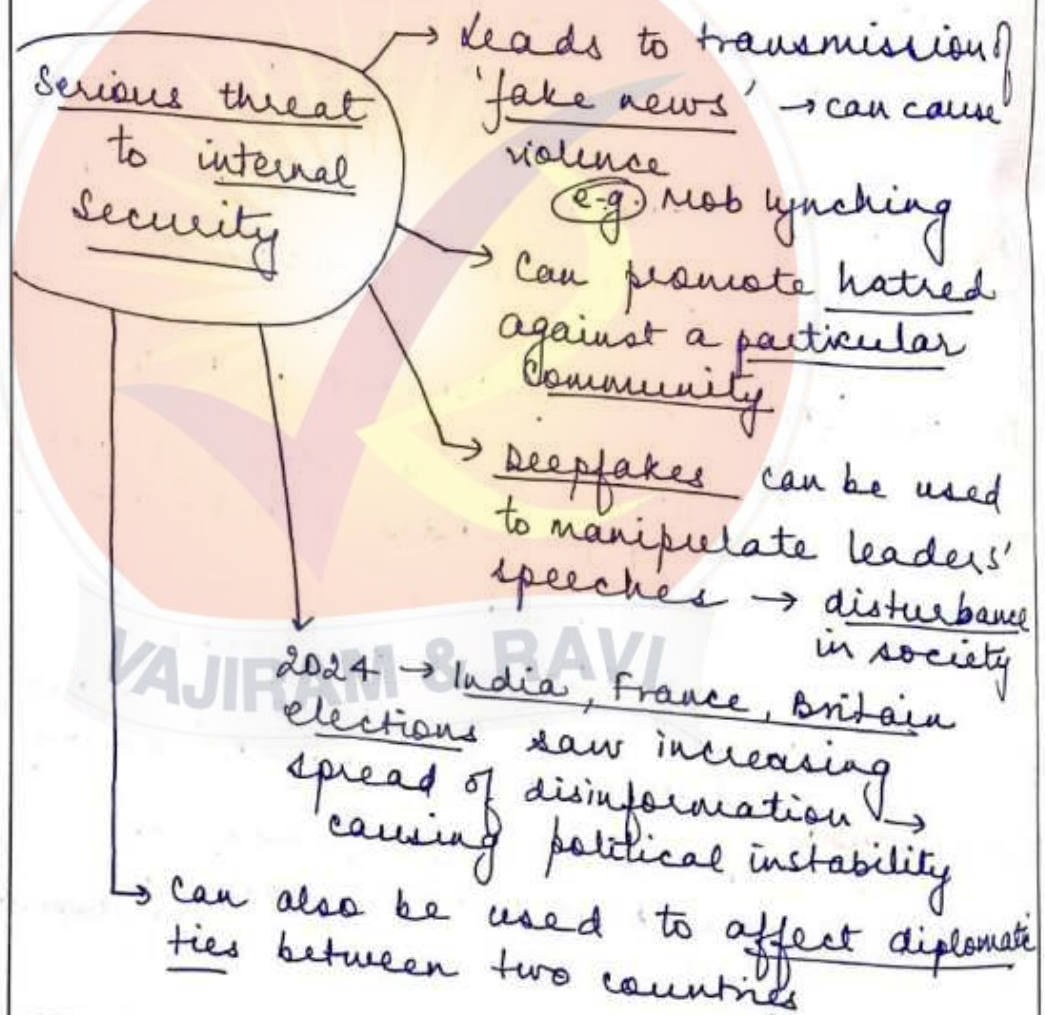 Serious threat
to internal
Security
→ Leads to transmission of
'fake news' → can cause
violence
e.g. Mob lynching
→ Can promote hatred
against a particular
Community
→ Deepfakes can be used
to manipulate leaders'
speeches → disturbance
in society
2024 → India, France, Britain
elections saw increasing
spread of disinformation →
causing political instability
→ Can also be used to affect diplomatic
ties between two countries
VAJIRAM & RAVI